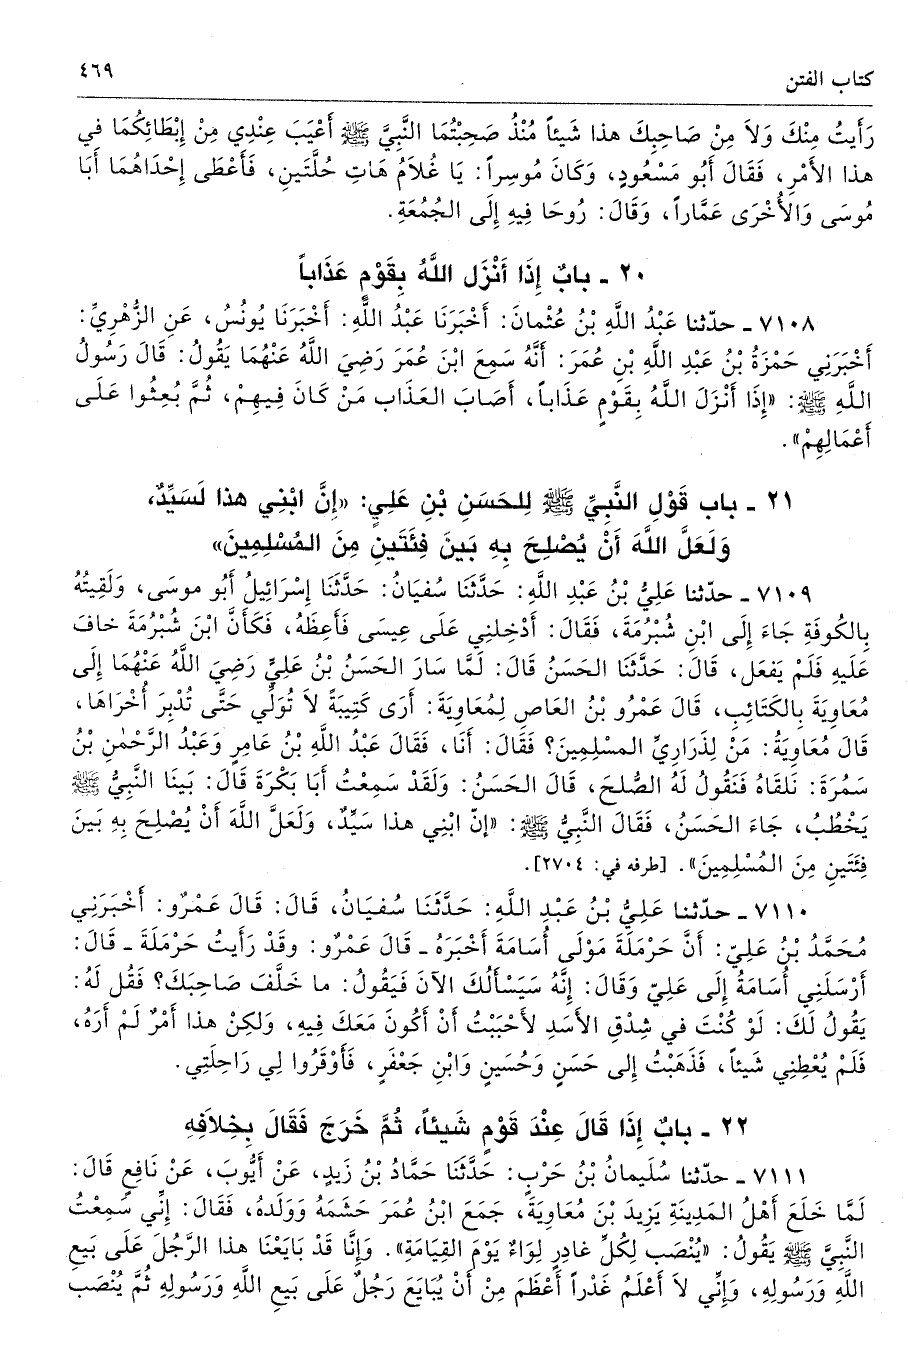 كتاب الفتن ٤٦٩
رَأَيتُ مِنْكَ وَلاَ مِنْ صَاحِبِكَ هذا شَيئاً مُنْذُ صَحِبْتُمَا النَّبِيَّ ﷺ أَعْيَبَ عِنْدِي مِنْ إِبْطَائِكُمَا في
هذا الأَمْرِ، فَقَالَ أَبُو مَسْعُودٍ، وَكَانَ مُوسِراً: يَا غُلاَمُ هَاتِ حُلَّتَينِ، فَأَعْطَى إِحْدَاهُمَا أَبَا
مُوسَى وَالأُخْرَى عَمَّاراً، وَقَالَ: رُوحَا فِيهِ إِلَى الجُمُعَةِ.
٢٠ ـ بابٌ إِذَا أَنْزَلَ اللَّهُ بِقَوْمٍ عَذَاباً
٧١٠٨ ـ حدّثنا عَبْدُ اللَّهِ بْنُ عُثْمانَ: أَخْبَرَنَا عَبْدُ اللَّهِ: أَخْبَرَنَا يُونُسُ، عَنِ الزُّهْرِيِّ:
أَخْبَرَنِي حَمْزَةُ بْنُ عَبْدِ اللَّهِ بْنِ عُمَرَ: أَنَّهُ سَمِعَ ابْنَ عُمَرَ رَضِيَ اللَّهُ عَنْهُمَا يَقُولُ: قَالَ رَسُولُ
اللَّهِ ﷺ: «إِذَا أَنْزَلَ اللَّهُ بِقَوْمٍ عَذَاباً، أَصَابَ العَذَابُ مَنْ كَانَ فِيهِمْ، ثُمَّ بُعِثُوا عَلَى
أَعْمَالِهِمْ».
٢١ ـ باب قَوْلِ النَّبِيِّ ﷺ لِلحَسَنِ بْنِ عَلِيٍ: «إِنَّ ابْنِي هذا لَسَيِّدٌ،
وَلَعَلَّ اللَّهَ أَنْ يُصْلِحَ بِهِ بَينَ فِئَتَينِ مِنَ المُسْلِمِينَ»
٧١٠٩ ـ حدّثنا عَلِيُّ بْنُ عَبْدِ اللَّهِ: حَدَّثَنَا سُفيَانُ: حَدَّثَنَا إِسْرَائِيلُ أَبُو موسَى، وَلَقِيتُهُ
بِالكُوفَةِ جَاءَ إِلَى ابْنِ شُبْرُمَةَ، فَقَالَ: أَدْخِلنِي عَلَى عِيسَى فَأَعِظَهُ، فَكَأَنَّ ابْنَ شُبْرُمَةَ خافَ
عَلَيهِ فَلَمْ يَفعَل، قَالَ: حَدَّثَنَا الحَسَنُ قَالَ: لَمَّا سَارَ الحَسَنُ بْنُ عَلِيٍّ رَضِيَ اللَّهُ عَنْهُمَا إِلَى
مُعَاوِيَةَ بِالكَتَائِبِ، قَالَ عَمْرُو بْنُ العَاصِ لِمُعَاوِيَةَ: أَرَى كَتِيبَةً لاَ تُوَلِّي حَتَّى تُدْبِرَ أُخْرَاهَا،
قَالَ مُعَاوِيَةُ: مَنْ لِذَرَارِيِّ المسْلِمِينَ؟ فَقَالَ: أَنَا، فَقَالَ عَبْدُ اللَّهِ بْنُ عَامِرٍ وَعَبْدُ الرَّحْمٰنِ بْنُ
سَمُرَةَ: نَلقَاهُ فَنَقُولُ لَهُ الصُّلحَ، قَالَ الحَسَنُ: وَلَقَدْ سَمِعْتُ أَبَا بَكْرَةَ قَالَ: بَينَا النَّبِيُّ ﷺ
يَخْطُبُ، جَاءَ الحَسَنُ، فَقَالَ النَّبِيُّ ﷺ: «إنّ ابْنِي هذا سَيِّدٌ، وَلَعَلَّ اللَّهَ أَنْ يُصْلِحَ بِهِ بَينَ
فِئَتَينِ مِنَ المُسْلِمِينَ». [طرفه في: ٢٧٠٤].
٧١١٠ ـ حدّثنا عَلِيُّ بْنُ عَبْدِ اللَّهِ: حَدَّثَنَا سُفيَانُ، قَالَ: قَالَ عَمْرٌو: أَخْبَرَنِي
مُحَمَّدُ بْنُ عَلِيّ: أَنَّ حَرْمَلَةَ مَوْلَى أُسَامَةَ أَخْبَرَهُ ـ قَالَ عَمْرٌو: وَقَدْ رَأَيتُ حَرْمَلَةَ ـ قَالَ:
أَرْسَلَنِي أُسَامَةُ إِلَى عَلِيّ وَقَالَ: إِنَّهُ سَيَسْأَلُكَ الآنَ فَيَقُولُ: ما خَلَّفَ صَاحِبَكَ؟ فَقُل لَهُ:
يَقُولُ لَكَ: لَوْ كُنْتَ في شِدْقِ الأَسَدِ لأَحْبَبْتُ أَنْ أَكُونَ مَعَكَ فِيهِ، وَلكِنْ هذا أَمْرٌ لَمْ أَرَهُ،
فَلَمْ يُعْطِنِي شَيئاً، فَذَهَبْتُ إِلى حَسَنٍ وَحُسَينٍ وَابْنِ جَعْفَرٍ، فَأَوْقَرُوا لِي رَاحِلَتِي.
٢٢ ـ بابٌ إِذَا قَالَ عِنْدَ قَوْمٍ شَيئاً، ثُمَّ خَرَجَ فَقَالَ بِخِلاَفِهِ
٧١١١ ـ حدّثنا سُلَيمانُ بْنُ حَرْبٍ: حَدَّثَنَا حَمَّادُ بْنُ زَيدٍ، عَنْ أَيُّوبَ، عَنْ نَافِعٍ قَالَ:
لَمَّا خَلَعَ أَهْلُ المَدِينَةِ يَزِيدَ بْنَ مُعَاوِيَةَ، جَمَعَ ابْنُ عُمَرَ حَشَمَهُ وَوَلَدَهُ، فَقَالَ: إِنِّي سَمِعْتُ
النَّبِيَّ ﷺ يَقُولُ: «يُنْصَبُ لِكُلِّ غادِرٍ لِوَاءٌ يَوْمَ القِيَامَةِ». وَإِنَّا قَدْ بَايَعْنَا هذا الرَّجُلَ عَلَى بَيعِ
اللَّهِ وَرَسُولِهِ، وَإِنِّي لاَ أَعْلَمُ غَدْراً أَعْظَمَ مِنْ أَنْ يُبَايَعَ رَجُلٌ عَلَى بَيعِ اللَّهِ وَرَسُولِهِ ثُمَّ يُنْصَبُ